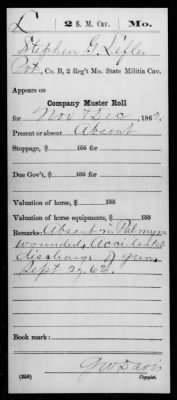 L | 2 S. M. Cav. | Mo.
Stephen G. Lefler
Pvt, Co. B, 2 Reg't Mo. State Militia Cav.
Appears on
Company Muster Roll
for Nov & Dec, 1862.
Present or absent Absent
Stoppage, $ 100 for
Due Gov't, $ 100 for
Valuation of horse, $ 100
Valuation of horse equipments, $ 100
Remarks: Absent in Palmyra
wounded, Accidental
discharge of gun,
Sept 29, 62.
Book mark:
G W Davis
(358) Copyist.